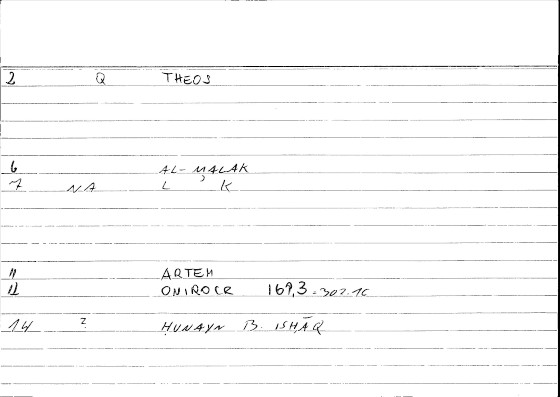 2 Q THEOS
6 AL-MALAK
7 NA L ʾ K
11 ARTEM
12 ONIROCR 169,3 - 302.10
14 ? ḤUNAYN B. ISḤĀQ